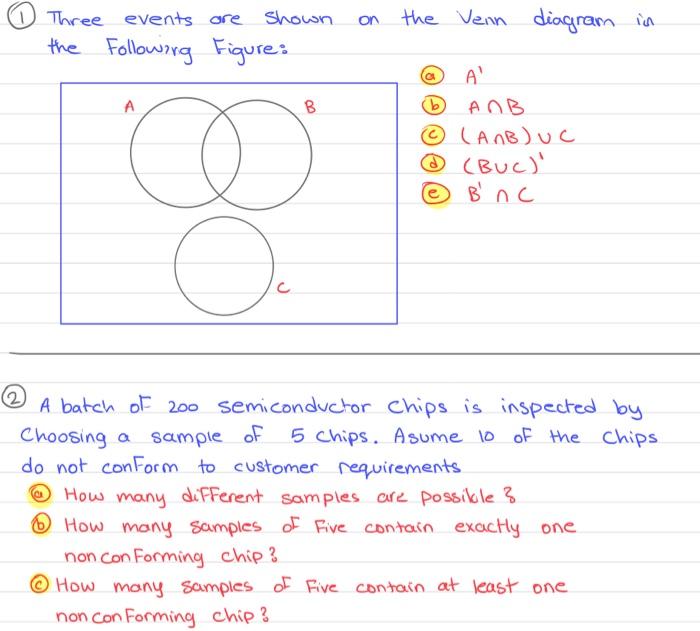 ① Three events are shown on the Venn diagram in
the Following Figure:
A
B
C
ⓐ A'
ⓑ A∩B
ⓒ (A∩B)∪C
ⓓ (B∪C)'
ⓔ B'∩C
② A batch of 200 semiconductor chips is inspected by
Choosing a sample of 5 chips. Asume 10 of the chips
do not conform to customer requirements
ⓐ How many different samples are possible?
ⓑ How many samples of Five contain exactly one
nonconForming chip?
ⓒ How many samples of Five contain at least one
nonconForming chip?